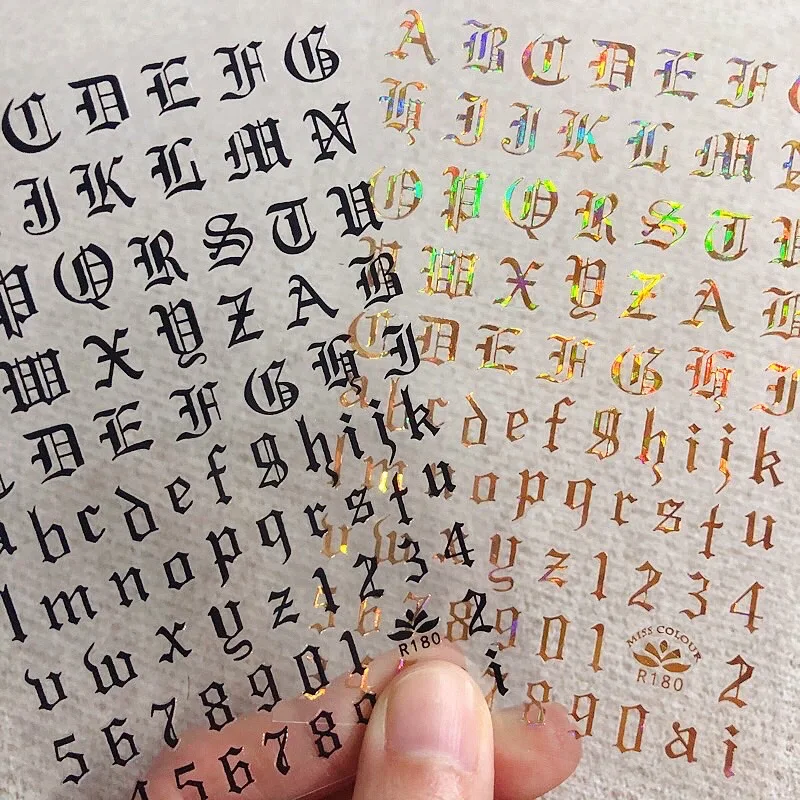 C D E F G
I J K L M N
P Q R S T U
W X Y Z A B
D E F G H I
a b c d e f g h i j k
l m n o p q r s t u
v w x y z 1 2 3 4
5 6 7 8 9 0 1
R180
2
4 5 6 7 8 9
i
A B C D E F
H I J K L M N
O P Q R S T U
W X Y Z A B
C D E F G H I
a b c d e f g h i j k
l m o p q r s t u
v w y z 1 2 3 4
5 6 7 8 9 0 1
MISS COLOUR
R180
2
8 9 0 a i